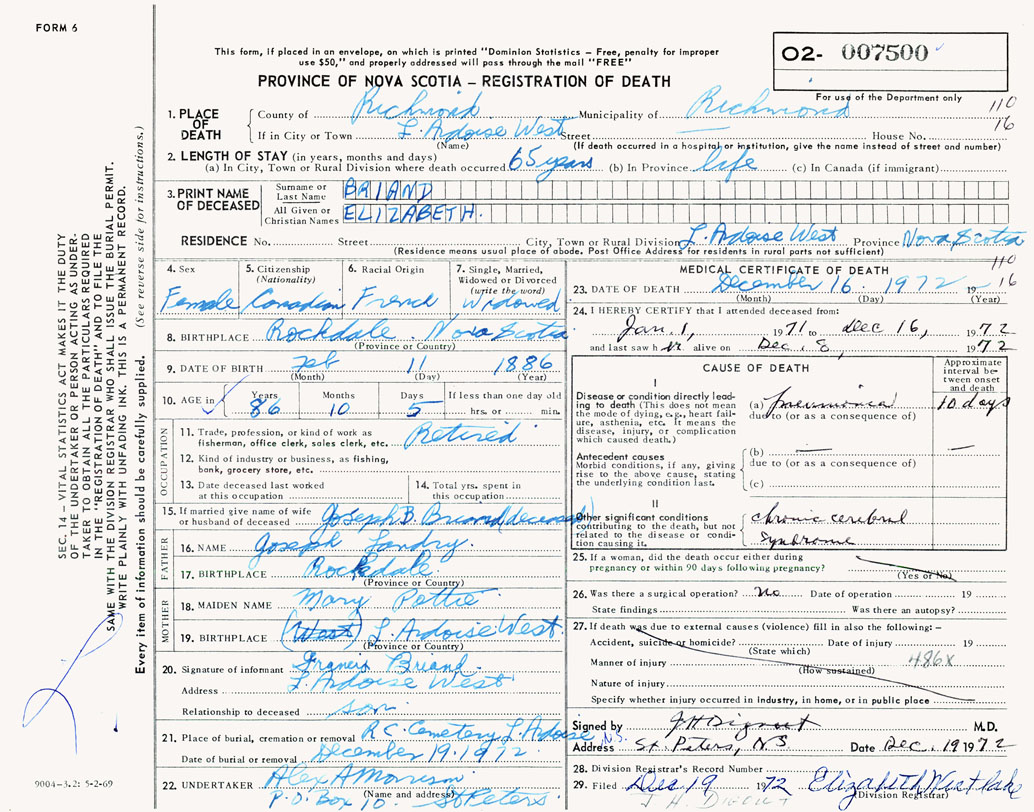 FORM 6
This form, if placed in an envelope, on which is printed "Dominion Statistics – Free, penalty for improper
use $50," and properly addressed will pass through the mail "FREE"
O2- 007500
PROVINCE OF NOVA SCOTIA – REGISTRATION OF DEATH
For use of the Department only
110
16
1. PLACE OF DEATH
County of Richmond Municipality of Richmond
If in City or Town L. Ardoise West Street — House No.
(Name) (If death occurred in a hospital or institution, give the name instead of street and number)
2. LENGTH OF STAY (in years, months and days)
(a) In City, Town or Rural Division where death occurred 65 years (b) In Province life (c) In Canada (if immigrant)
3. PRINT NAME OF DECEASED
Surname or Last Name BRIAND
All Given or Christian Names ELIZABETH.
RESIDENCE No. Street City, Town or Rural Division L. Ardoise West Province Nova Scotia
(Residence means usual place of abode. Post Office Address for residents in rural parts not sufficient)
4. Sex Female
5. Citizenship (Nationality) Canadian
6. Racial Origin French
7. Single, Married, Widowed or Divorced (write the word) Widowed
8. BIRTHPLACE Rockdale. Nova Scotia
(Province or Country)
9. DATE OF BIRTH Feb 11 1886
(Month) (Day) (Year)
10. AGE in Years 86 Months 10 Days 5 If less than one day old hrs. or min.
OCCUPATION
11. Trade, profession, or kind of work as fisherman, office clerk, sales clerk, etc. Retired
12. Kind of industry or business, as fishing, bank, grocery store, etc.
13. Date deceased last worked at this occupation
14. Total yrs. spent in this occupation
15. If married give name of wife or husband of deceased Joseph B. Briand (deceased)
FATHER
16. NAME Joseph Landry.
17. BIRTHPLACE Rockdale
(Province or Country)
MOTHER
18. MAIDEN NAME Mary Pottie
19. BIRTHPLACE (West) L. Ardoise West.
(Province or Country)
20. Signature of informant Francis Briand.
Address L. Ardoise West
Relationship to deceased son
21. Place of burial, cremation or removal R.C. Cemetery L. Ardoise N.S.
Date of burial or removal December 19. 1972.
22. UNDERTAKER Alex A Morrison
(Name and address)
P.O. Box 10. St Peters.
MEDICAL CERTIFICATE OF DEATH
110
16
23. DATE OF DEATH December 16. 1972 19
(Month) (Day) (Year)
24. I HEREBY CERTIFY that I attended deceased from:
Jan. 1, 1971 to Dec 16, 1972
and last saw her alive on Dec. 8, 1972
CAUSE OF DEATH
Approximate interval between onset and death
I
Disease or condition directly leading to death (This does not mean the mode of dying, e.g., heart failure, asthenia, etc. It means the disease, injury, or complication which caused death.)
(a) pneumonia 10 days
due to (or as a consequence of)
Antecedent causes
Morbid conditions, if any, giving rise to the above cause, stating the underlying condition last.
(b) — —
due to (or as a consequence of)
(c)
II
Other significant conditions contributing to the death, but not related to the disease or condition causing it.
chronic cerebral
syndrome
25. If a woman, did the death occur either during
pregnancy or within 90 days following pregnancy?
(Yes or No)
26. Was there a surgical operation? No Date of operation 19
State findings Was there an autopsy?
27. If death was due to external causes (violence) fill in also the following:–
Accident, suicide or homicide? Date of injury 19
(State which)
Manner of injury 486X
(How sustained)
Nature of injury
Specify whether injury occurred in industry, in home, or in public place
Signed by M.D.
Address St. Peters, N.S Date Dec. 19 1972
28. Division Registrar's Record Number
29. Filed Dec 19 1972 Elizabeth Westlake
(Division Registrar)
SEC. 14 – VITAL STATISTICS ACT MAKES IT THE DUTY
OF THE UNDERTAKER OR PERSON ACTING AS UNDER-
TAKER TO OBTAIN ALL THE PARTICULARS REQUIRED
IN THE "REGISTRATION OF DEATH" AND TO FILE THE
SAME WITH THE DIVISION REGISTRAR WHO SHALL ISSUE THE BURIAL PERMIT.
WRITE PLAINLY WITH UNFADING INK. THIS IS A PERMANENT RECORD.
Every item of information should be carefully supplied. (See reverse side for instructions.)
9004-3.2: 5-2-69